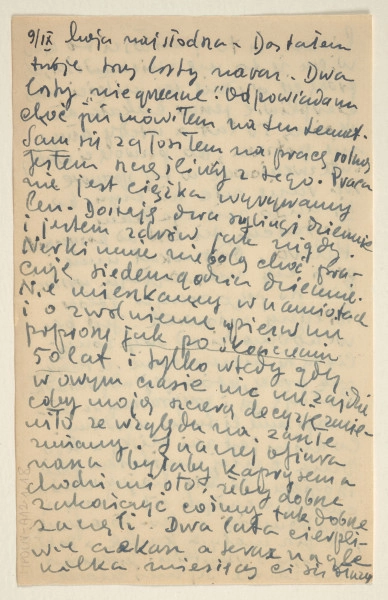 9/IX Moja najsłodsza - Dostałem
twoje trzy listy naraz. Dwa
listy "niegrzeczne". Odpowiadam
choć już mówiłem na ten temat.
Sam się zgłosiłem na pracę rolną
Jestem szczęśliwy z tego. Praca
nie jest ciężka wyrywamy
len. Dostaję dwa szylingi dziennie
i jestem zdrów jak nigdy.
Nerki mnie nie bolą choć pra-
cuję siedem godzin dziennie.
Nie mieszkamy w namiotach
i o zwolnienie wpierw nie
poproszę jak po skończeniu
50 lat i tylko wtedy gdy
w owym czasie nic nie zajdzie
coby moją szczerą decyzję zmie-
niło ze względu na
zmiany. I na nej ofiara
nasza byłaby kaprysem a
chodzi mi o to żeby dobrze
zakończyć cośmy tak dobrze
zaczęli. Dwa lata cierpli-
wie czekasz a teraz nagle
kilka miesięcy ci się